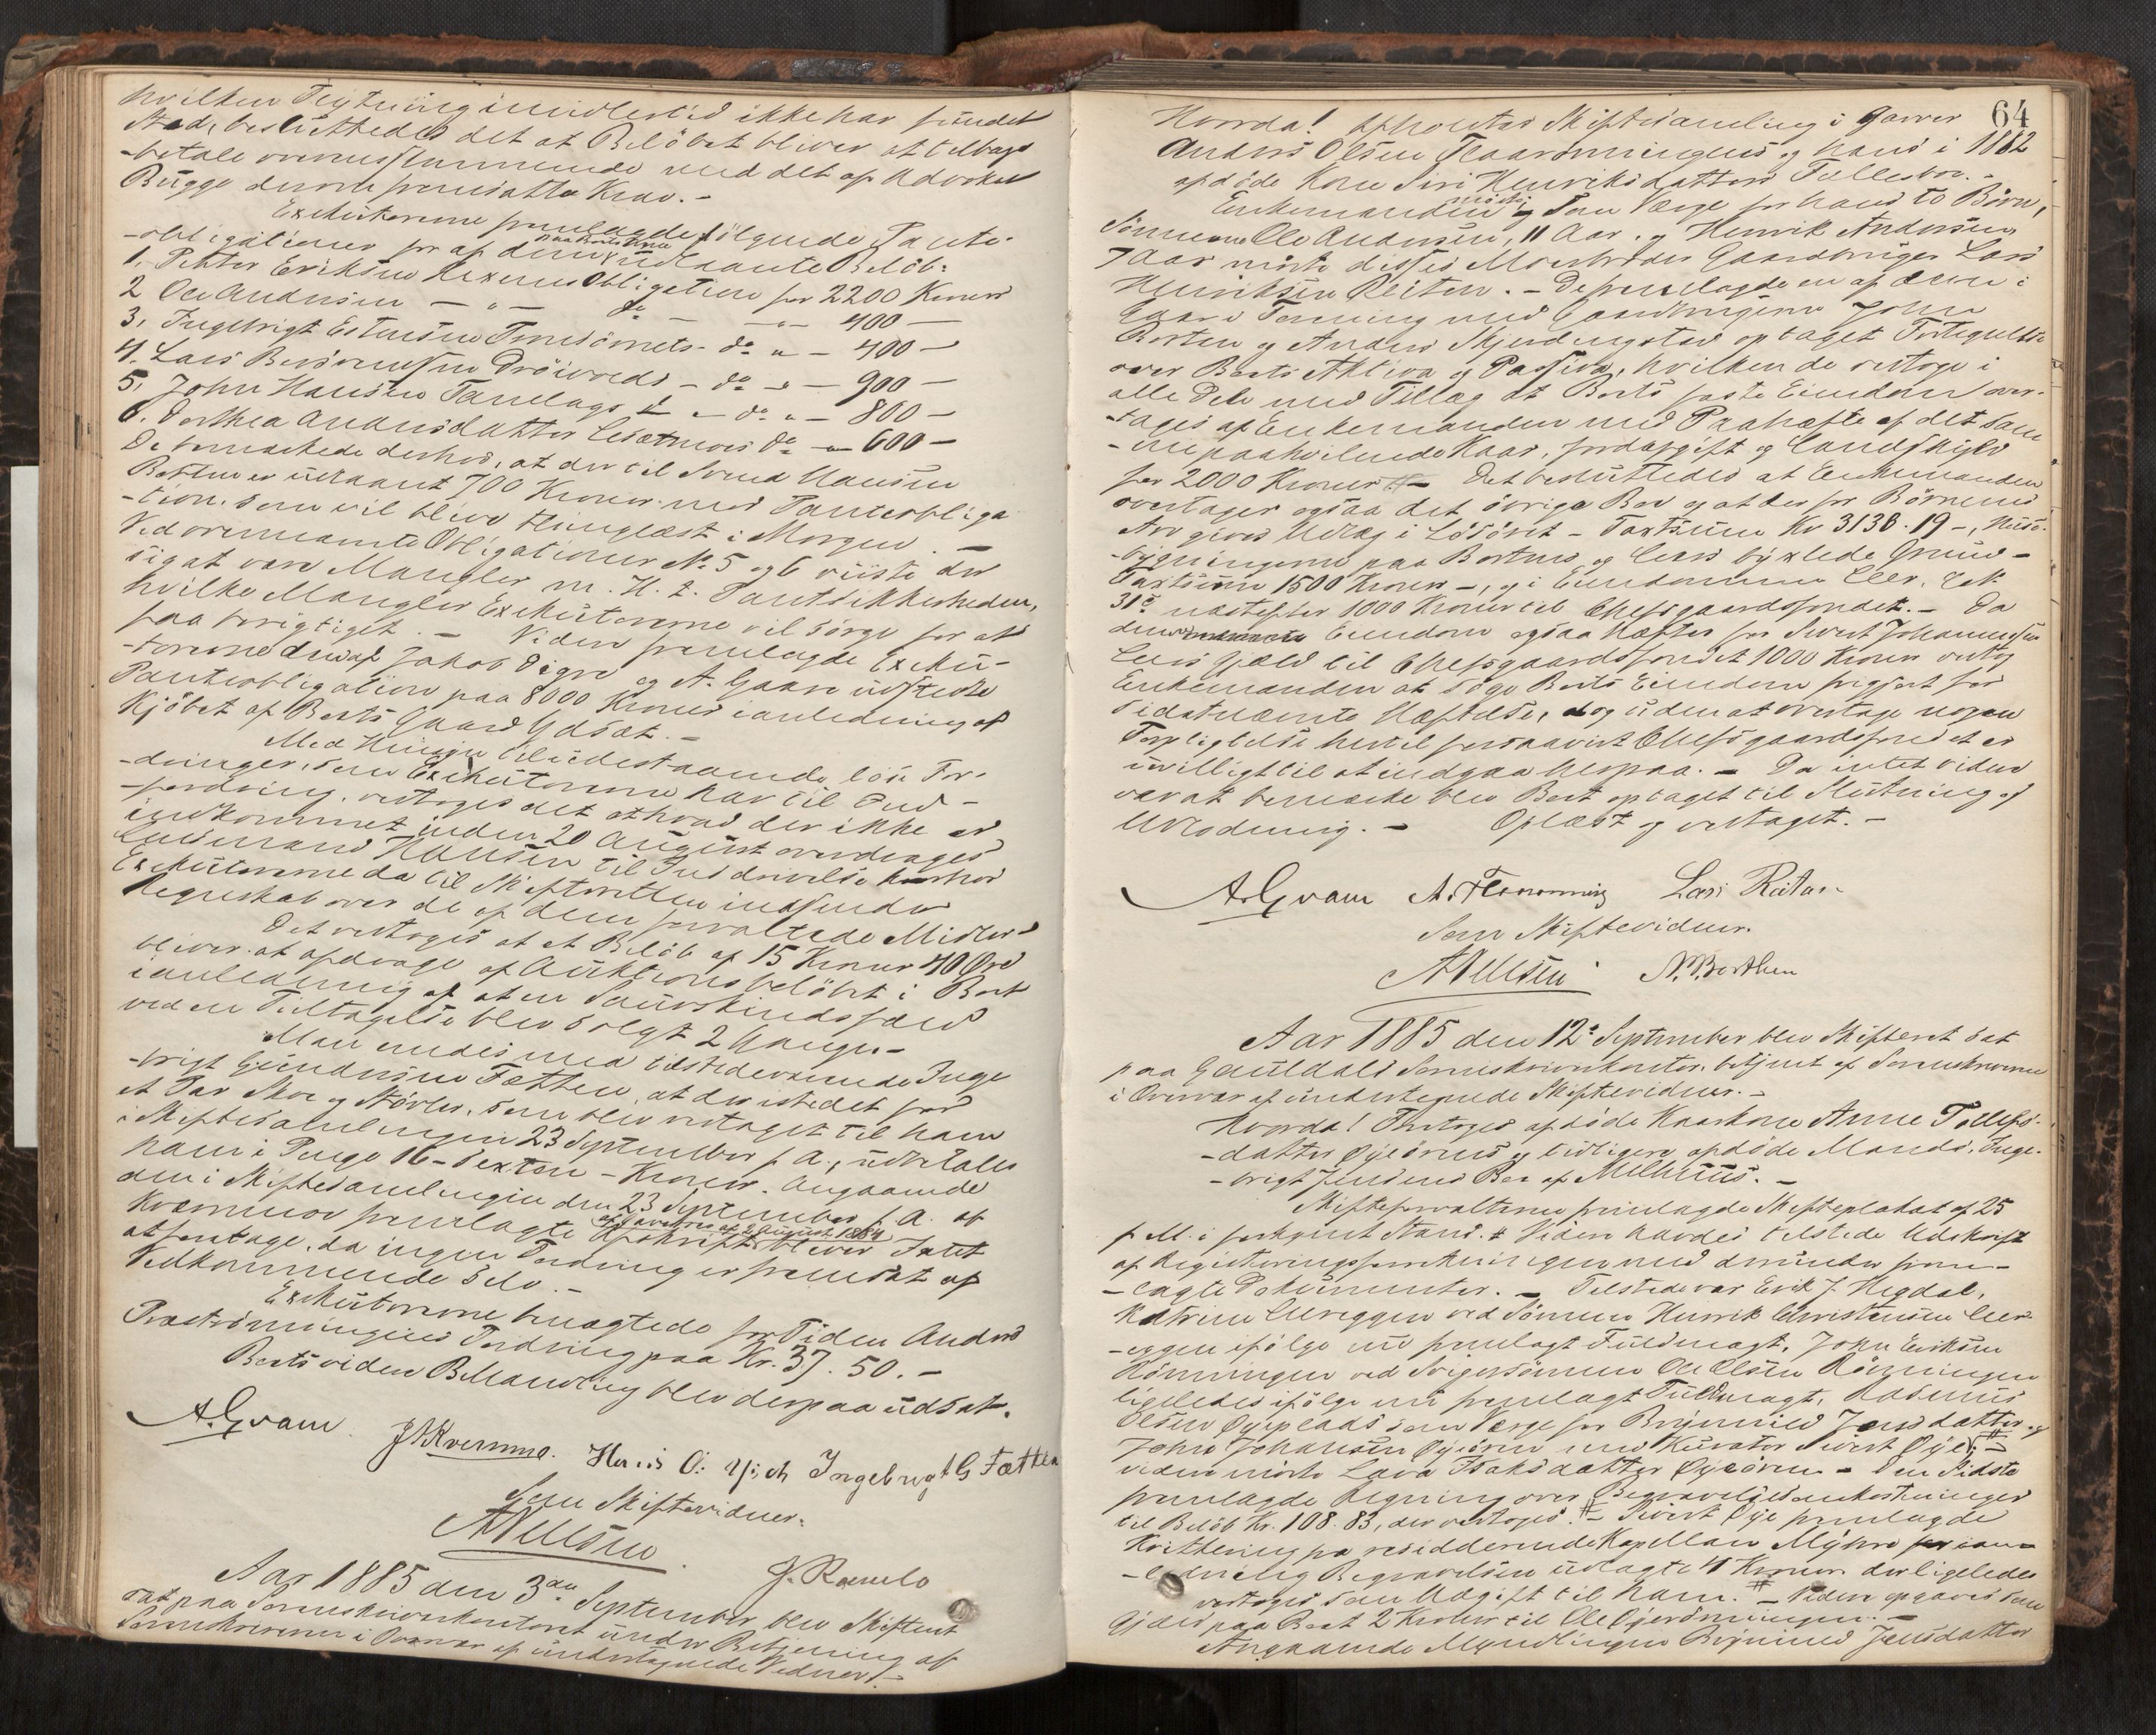 hvilken Flytning imidlertid ikke har fundet
Sted, besluttedes det at Beløbet bliver at tilbage
-betale overensstemmende med det af Advokat
Bugge derom fremsatte Krav.-
Exekutorerne fremlagde følgende Pante-
-obligationer for af dem udlaante Beløb:
1. Petter Eriksen Obligation for 2200 Kroner
2 Ole Andersen - " - do - " - 400 -
3. Ingebrigt Estensen - do " - 400 -
4. Lars - do - " - 900 -
5. John Hansen - do " - 800 -
6. Dorthea Andersdatter do - " 600 -
De bemærkede derhos, at der til Svend Hansen
er udlaant 700 Kroner mod Panteobliga
-tion, som vil blive thinglæst i Morgen. -
Ved ovennævnte Obligationer No 5 og 6 viiste der
sig at være Mangler m. H. t. Pantesikkerheden,
hvilke Mangler Exekutorerne vil sørge for at
faa berigtiget. - Viden fremlagde Exeku-
-torerne den af Jakob Digre og A. Gaare udstedte
Panteobligation paa 8000 Kroner i anledning af
Kjøbet af Boets Gaard -
Med Hensyn til udestaaende løse For-
-dringer, som Exekutorerne har til Ind-
-fordring, vedtoges det at hvad der ikke er
indkommet inden 20 August overdrages
Lensmand Hansen til Inddrivelse hvorhos
Exekutorerne da til Skifteretten indsender
Regnskab over de af dem forvaltede Midler
Det vedtoges at et Beløb af 15 Kroner 40 Øre
bliver at afdrage af Auktionsbeløbet i Boet
i anledning af at en Saueskindsfæld
ved en Feiltagelse blev solgt 2 Gange-
Man enedes med tilstedeværende Inge
-brigt Gundersen Fætten, at der istedet for
et Par Skoe og Støvler, som blev vedtaget til ham
i Skiftesamlingen 23 September f. A., udbetales
ham i Penge 16 - sexten - Kroner. Angaaende
den i Skiftesamlingen den 23 September f. A. af
Kvernmo fremlagte Afskrift af 2 August 1884 bliver Intet
at foretage, da ingen Fordring er fremsat af
Vedkommende selv. -
Exekutorerne benægtede for Tiden Anders
Fordring paa Kr. 37. 50. -
Boets videre Behandling blev derpaa udsat.
A. Qvam. J Kvernmo. Ingebregt G Fætten
Som Skiftevidner.
A Nilsen. J. Ramlo
Aar 1885 den 3die September blev Skifteret
sat paa Sorenskriverkontoret under Betjening af
Sorenskriveren i Overvær af undertegnede Vidner.-
64
Hvorda! Afholdtes Skiftesamling i Gaarbr
Anders Olsen og hans i 1882
afdøde Kone Siri Henriksdatters Fællesboe. -
Enkemanden mødte og som Værge for hans to Børn,
Sønnerne Ole Andersen, 11 Aar, og Henrik Andersen
7 Aar mødte disses Morbroder Gaardbruger Lars
Henriksen Reitan. - De fremlagde en af dem i
Forening med Gaardbrugerne John
og Anders optaget Fortegnelse
over Boets Aktiva og Passiva, hvilken de vedtoge i
alle Dele med Tillæg at Boets faste Eiendom over-
-tages af Enkemanden med Paahæfte af det sam
-me paahvilende Kaar, Jordafgift og Landskyld
for 2000 Kroner - Det besluttedes at Enkemanden
overtager ogsaa det øvrige Bo og at der for Børnenes
Arv gives Udlæg i Løsøret - Taxtsum Kr 3138. 19 -, Huse-
-bygningerne paa Boets og Leers byxlede Grund -
Taxtsum 1500 Kroner -, og i Eiendommen Leer,
næstefter 1000 Kroner til Chefsgaardsfondet. - Da
denne Eiendom ogsaa hæfter for Sivert Johannessen
Leers Gjæld til Chefsgaardsfondet 1000 Kroner vedtog
Enkemanden at søge Boets Eiendom frigjort for
sidstnævnte Hæftelse, dog uden at overtage nogen
Forpligtelse hertil forsaavidt Chefsgaardsfondet er
uvilligt til at indgaa herpaa. - Da intet videre
var at bemærke blev Boet optaget til Slutning og
Udlodning. - Oplæst og vedtaget. -
A. Qvam Lars Reitan
Som Skiftevidner.
A Nilsen
Aar 1885 den 12te September blev Skifteret sat
paa Gauldals Sorenskriverkontor, betjent af Sorenskriveren
i Overvær af undertegnede Skiftevidner. -
Hvorda! Foretoges afdøde Kaarkone Anne Tollefs-
-datter Øyeørens og tidligere afdøde Mands, Inge-
-brigt Bo af Melhuus. -
Skifteforvalteren fremlagde Skifteplakat af 25
f. M. i forkyndt Stand. # Viden havdes tilstede Udskrift
af Registreringsforretningen med derunder frem-
-lagte Dokumenter. - Tilstede var Erik J. Hegdal,
Katrine Leereggen ved Sønnen Henrik Christensen Leer-
-eggen ifølge nu fremlagt Fuldmagt, John Eriksen
Rønningen ved Svigersønnen Ole Olsen Rønningen
ligeledes ifølge nu fremlagt Fuldmagt, Rasmus
Olsen Øyeplads som Værge for Brynnild Jensdatter og
John Johansen Øyeøren med Kurator Sivert Øye, #
viden mødte Lava Isaksdatter Øyeøren - Den Sidste
fremlagde Regning over Begravelsesomkostninger
til Beløb Kr. 108. 83, der vedtoges. #- Sivert Øye fremlagde
Kvittering fra residerende Kapellan Myhre for i an-
-ledning Begravelsen udlagte 4 Kroner der ligeledes
vedtoges som Udgift til ham. #- Viden opgaves som
Gjæld paa Boet 2 Kroner til Ole -
Angaaende Myndlingen Brynnild Jensdatter